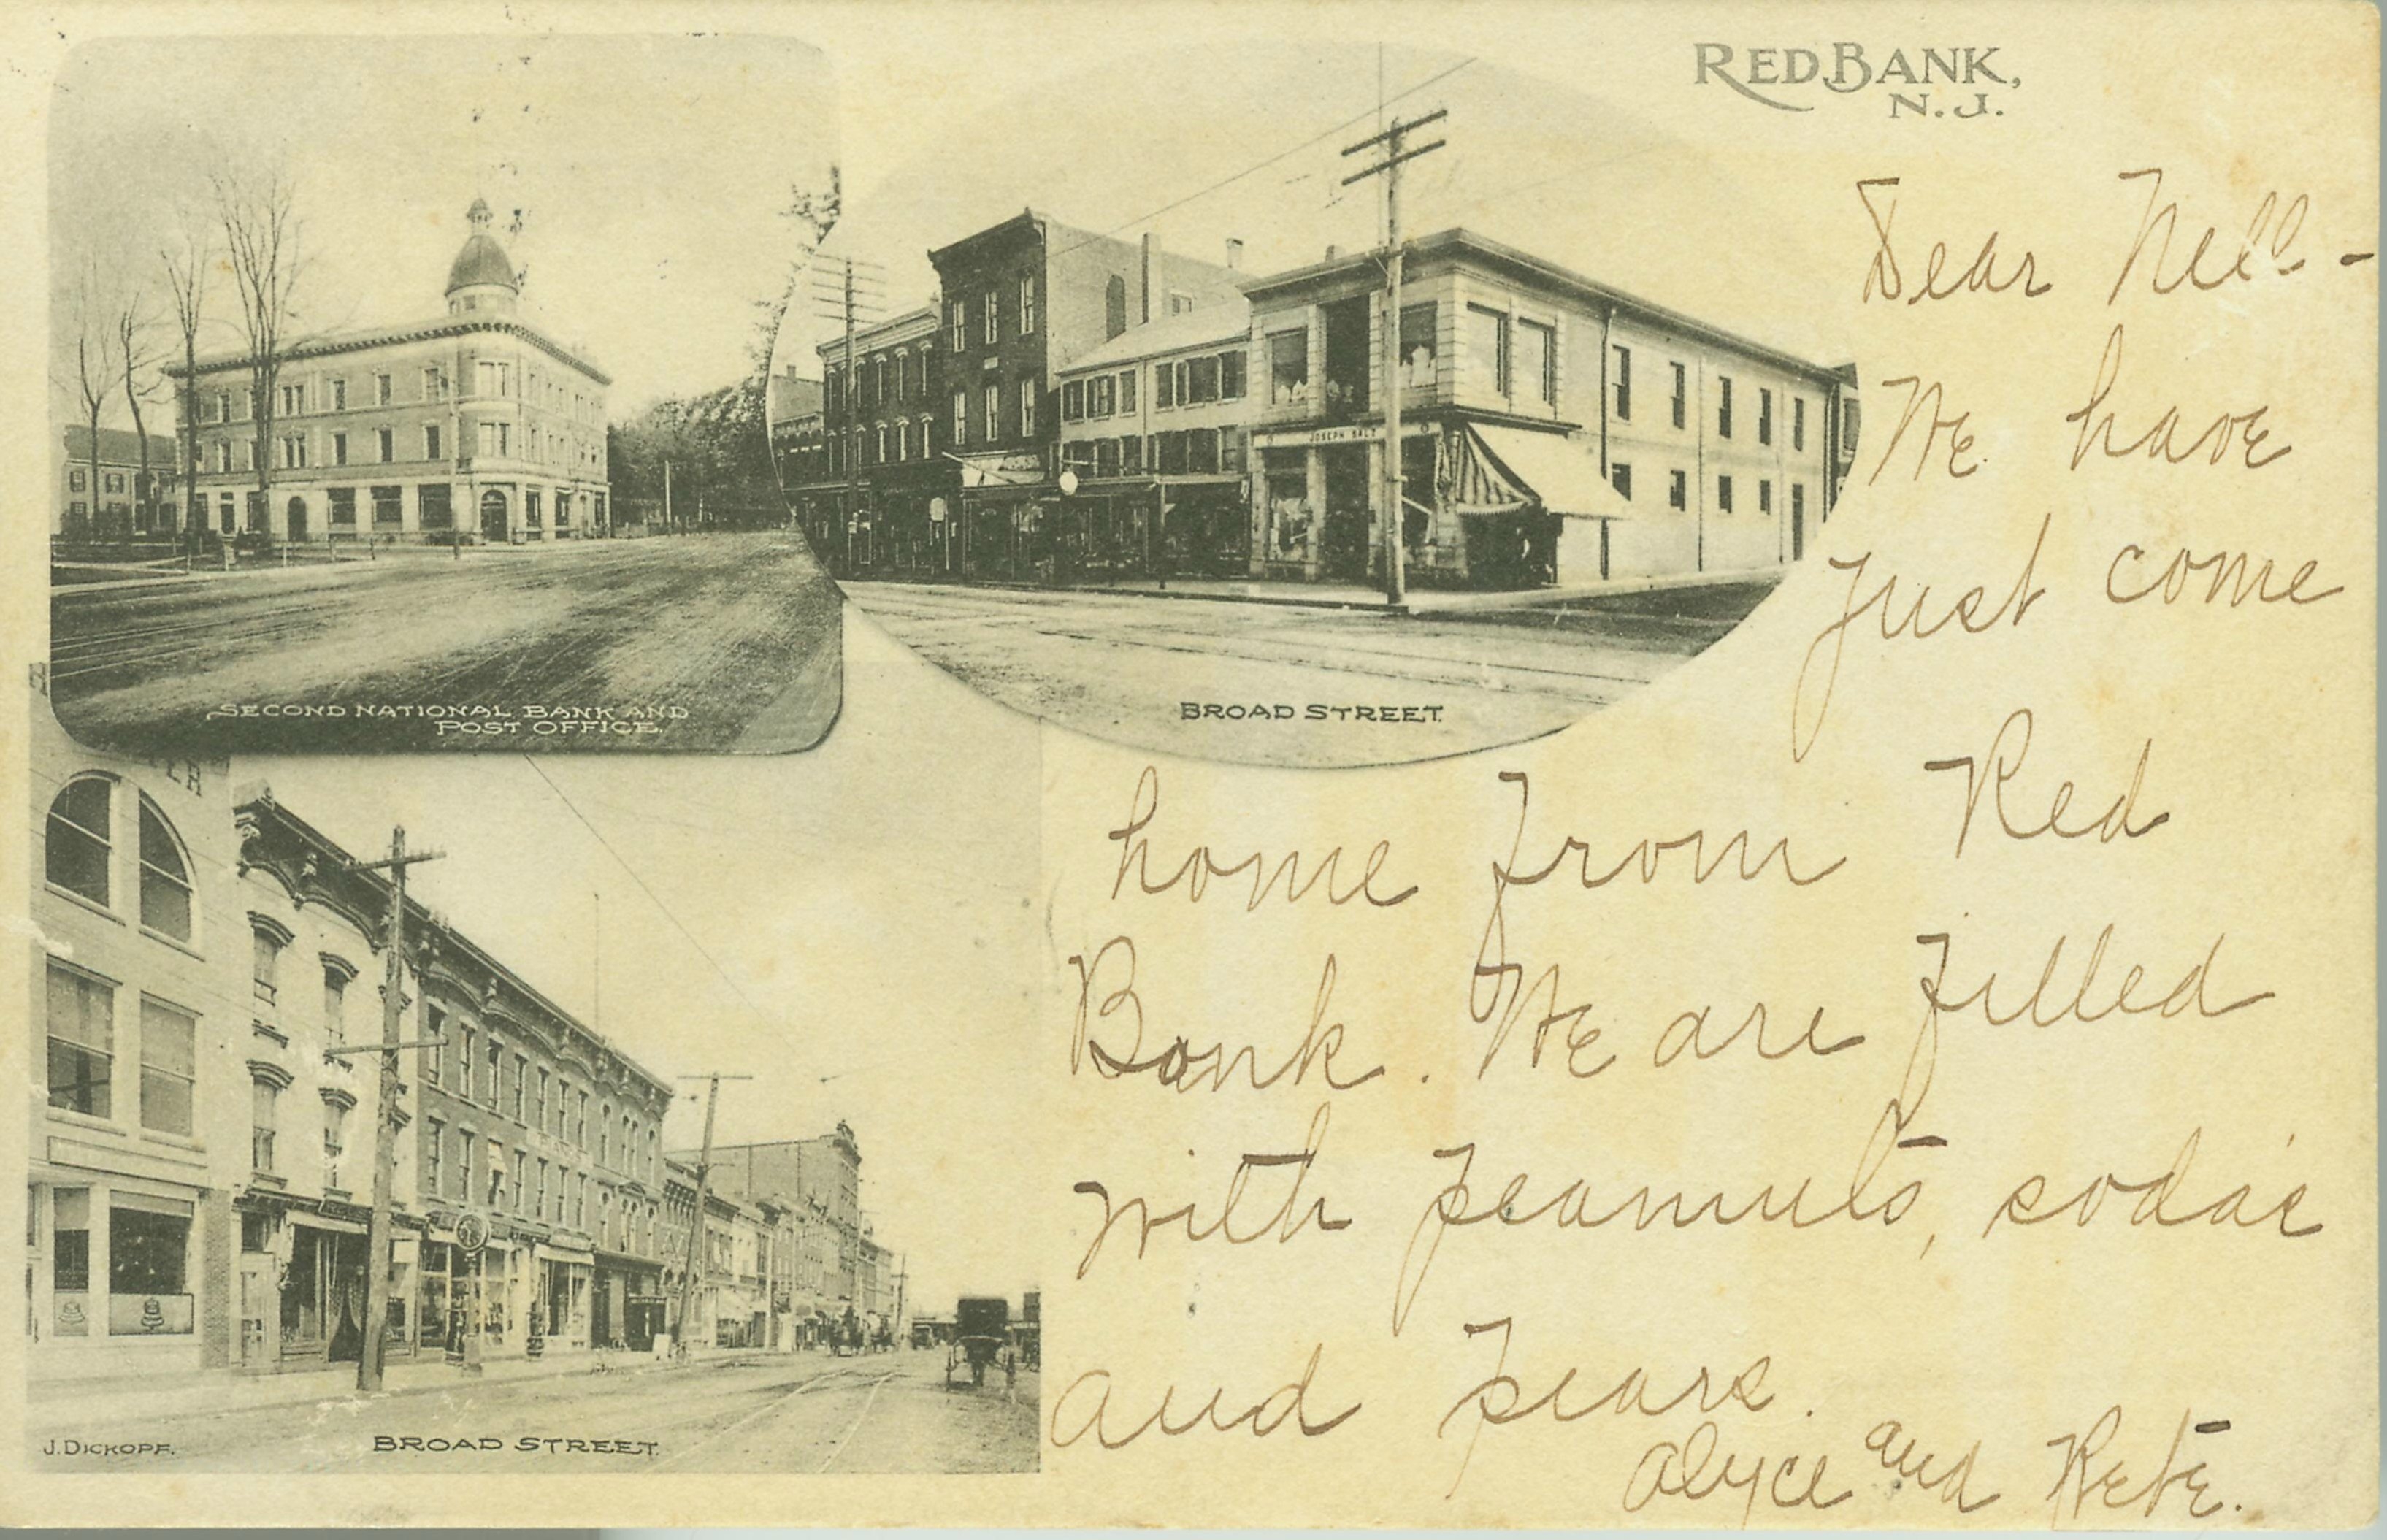 RED BANK,
N. J.
SECOND NATIONAL BANK AND
POST OFFICE.
JOSEPH SALZ
BROAD STREET.
Dear Nell -
We have
just come
home from Red
Bank. We are filled
with peanuts, soda's
and pears.
Alyce and
J. DICKOPF.
BROAD STREET.